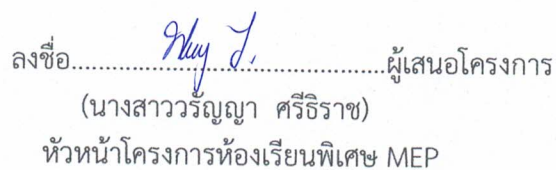 ลงชื่อ................................................ผู้เสนอโครงการ
(นางสาววรัญญา ศรีธิราช)
หัวหน้าโครงการห้องเรียนพิเศษ MEP